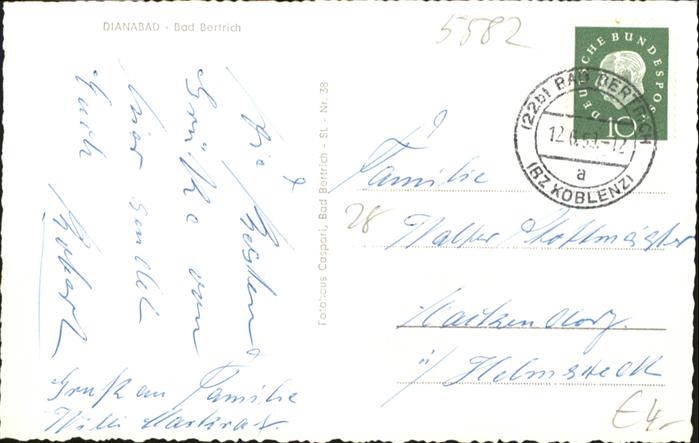 DIANABAD - Bad Bertrich
5582
Die besten
Grüße von
hier sendet
Euch
Robert
Gruß an Familie
Willi
Fotohaus Caspari, Bad Bertrich - SL - Nr. 38
DEUTSCHE BUNDESPOST
10
(22b) BAD BERTRICH
12. 59.-12
a
(BZ KOBLENZ)
Familie
28
Walter
ü/ Helmstedt
€ 4,-